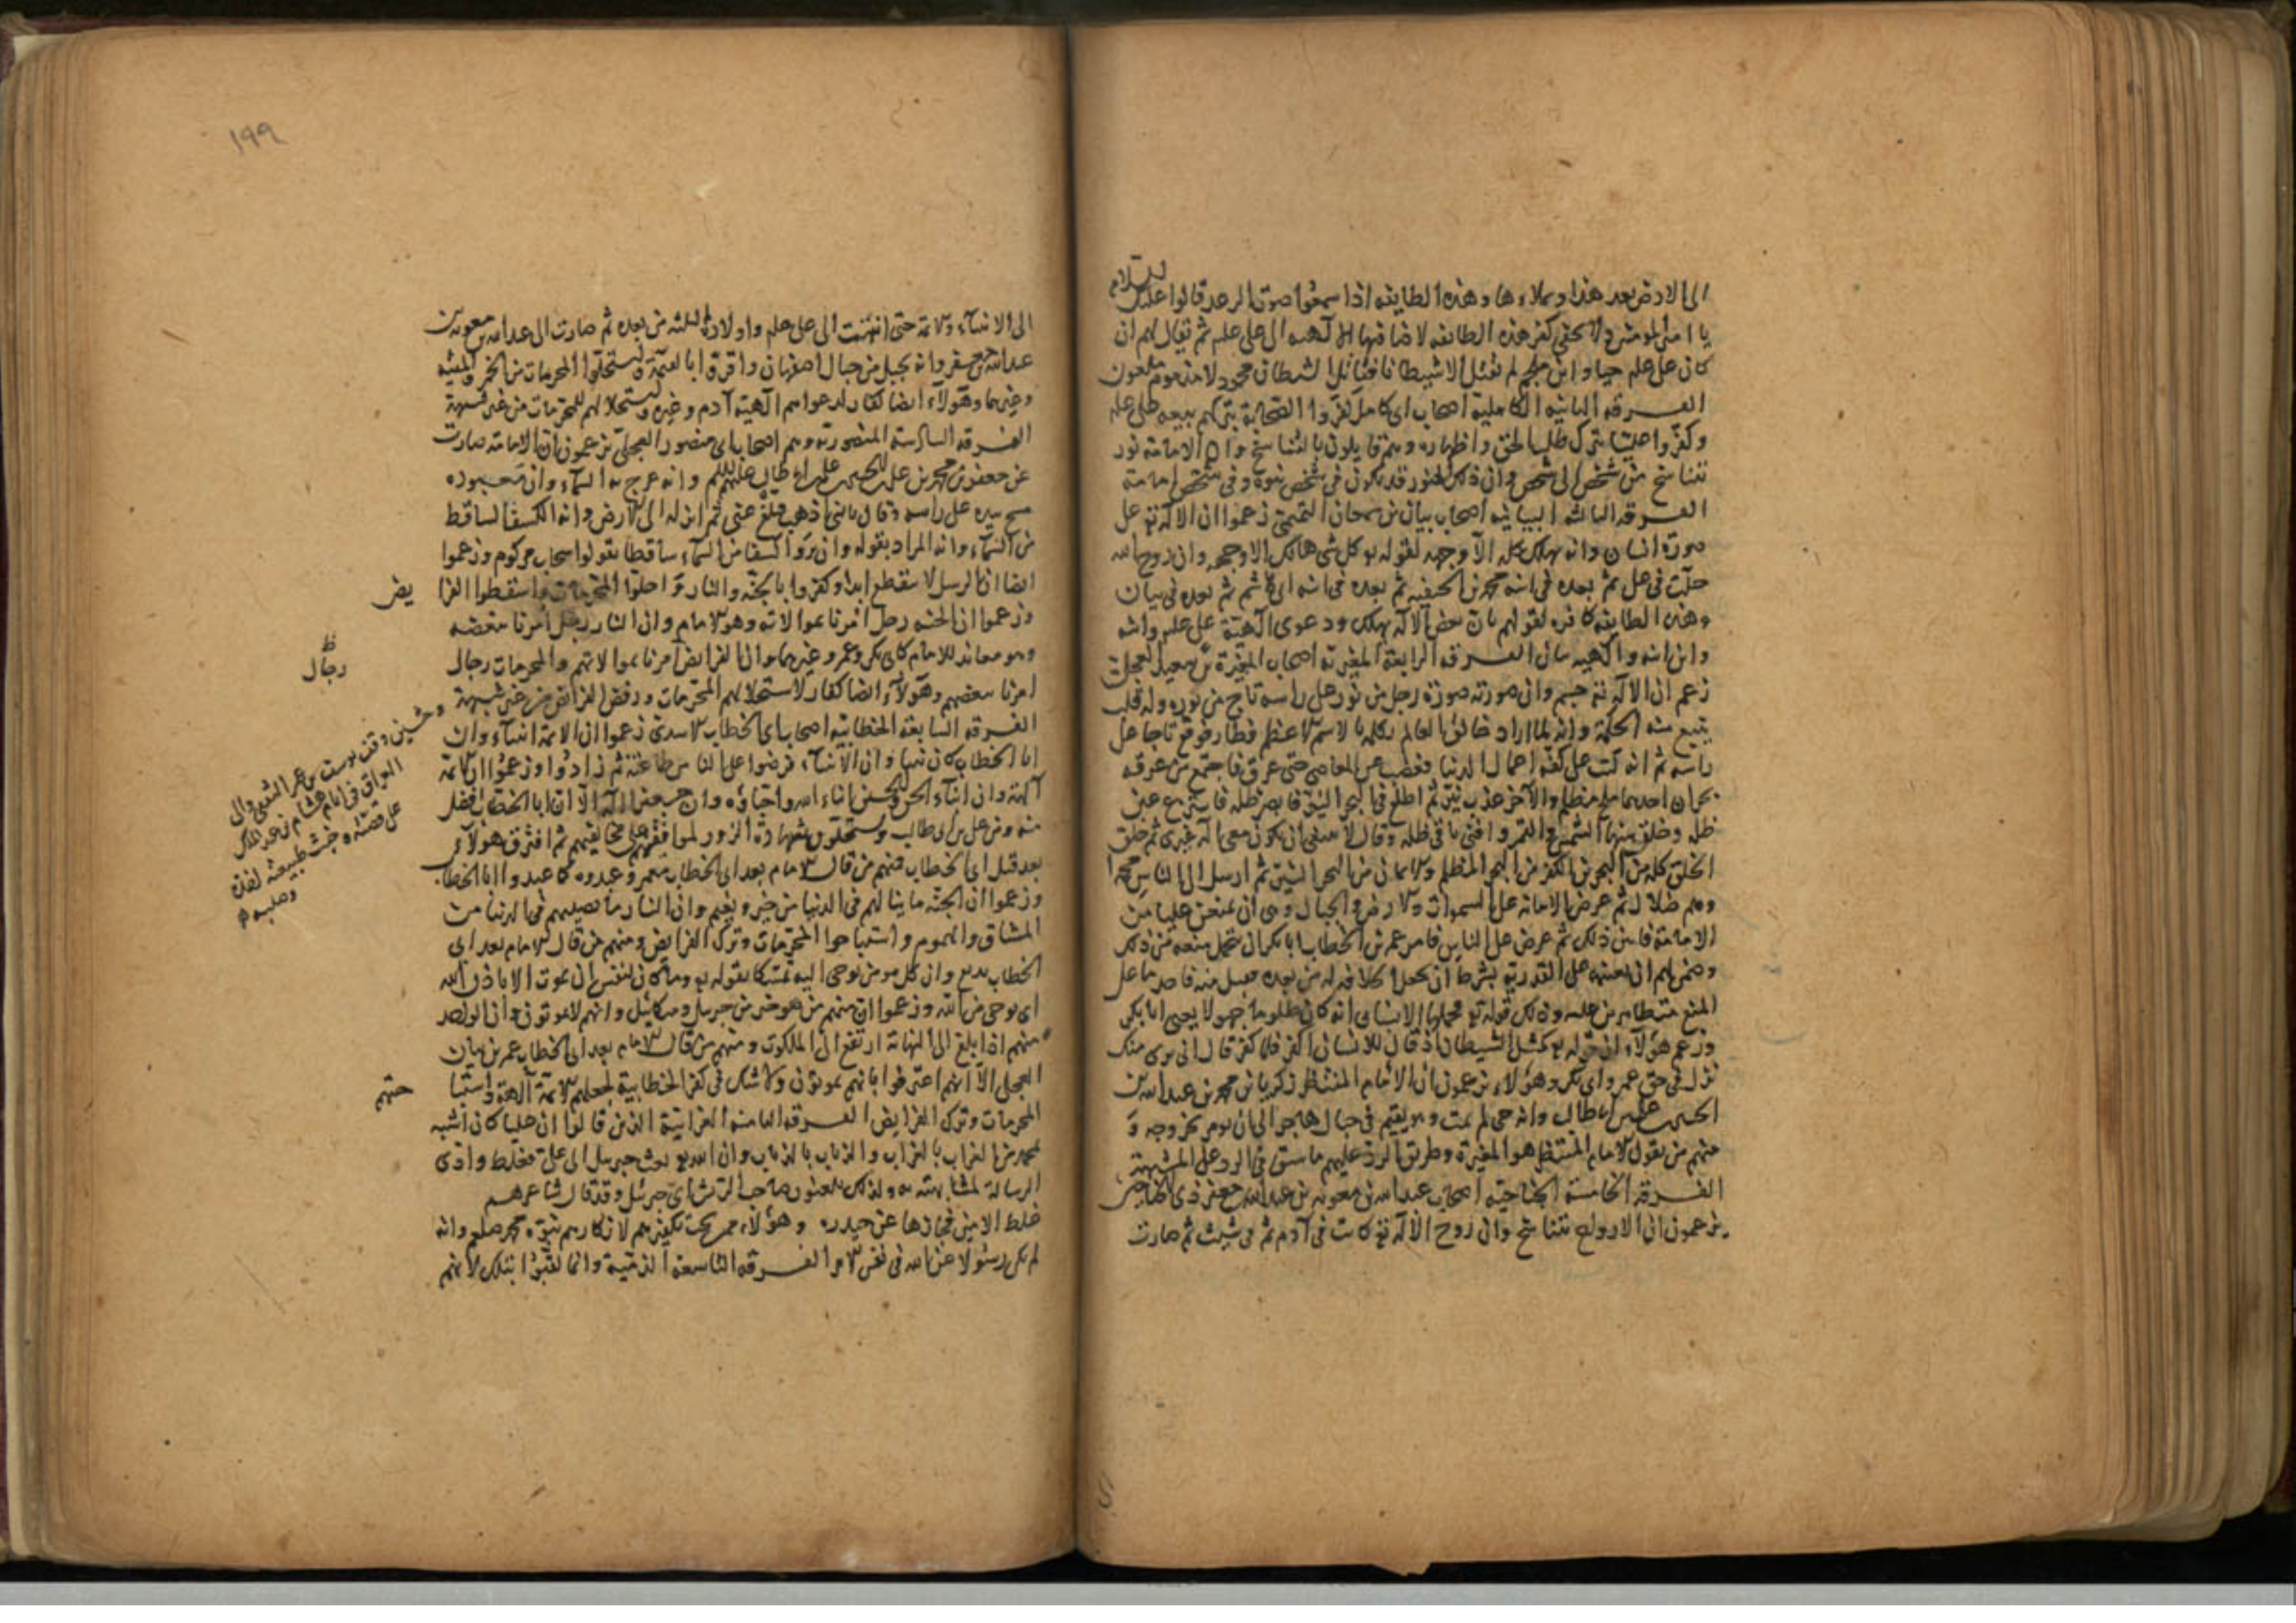 الى الارض بعد هذا ويملاءها وهذه الطايفه اذا سمعوا صوت الرعد قالوا عليك السلام
يا امير المومنين ولا يخفى كفر هذه الطائفه لاضافتها الالهيه الى على علم ثم يقال لهم ان
كان على علم حيا وابن ملجم لم يقتل الا شيطانا فقاتل الشيطان محمود لا مذموم ملعون
الفرقه الثانيه الكاملية اصحاب ابى كامل كفروا الصحابة بتركهم بيعه على علم
وكفروا عليا بترك طلب الحق واظهاره وهم قايلون بالتناسخ وان الامامة نور
تتناسخ من شخص الى شخص وان ذلك النور قد يكون فى شخص نبوة وفى شخص امامة
الفرقه الثالثه البيانيه اصحاب بيان بن سمعان التميمى زعموا ان الاله تع على
صورة انسان وانه يهلك كله الا وجهه لقوله تع كل شى هالك الا وجهه وان روح الله
حلت فى على ثم بعده فى ابنه محمد بن الحنفيه ثم بعده فى ابنه ابى هاشم ثم بعده فى بيان
وهذه الطايفه كافره لقولهم بان بعض الاله يهلك ودعوى الهية على علم وابنه
وابن ابنه والهيه بيان الفرقه الرابعة المغيرية اصحاب المغيرة بن سعيد العجلى
زعم ان الاله تع جسم وان صورته صورة رجل من نور على راسه تاج من نوره وله قلب
ينبع منه الحكمة وانه لما اراد خالق العالم تكلم بالاسم الاعظم فطار فوقع تاجا على
راسه ثم انه كتب على كفه اعمال الدنيا فغضب من المعاصى حتى عرق فاجتمع من عرقه
بحران احدهما ملح مظلم والآخر عذب نير ثم اطلع فى البحر النير فابصر ظله فانتزع عين
ظله وخلق منها الشمس والقمر وافنى باقى ظله وقال لا ينبغى ان يكون معى اله غيرى ثم خلق
الخلق كله من البحرين الكفر من البحر المظلم والايمان من البحر النير ثم ارسل الى الناس محمدا
وهم ضلال ثم عرض الامانه على السموات والارض والجبال وهى ان يمنعن عليا من
الامامة فابين ذلك ثم عرض على الناس فامر عمر بن الخطاب ابا بكر ان يتحمل منعه من ذلك
وضمن لهم ان يعينه على الغدر به بشرط ان يجعل الخلافه له من بعده فقبل منه فاقدما على
المنع متظاهرين عليه وذلك قوله تع فحملها الانسان انه كان ظلوما جهولا يعنى ابا بكر
وزعم هؤلاء ان قوله تع كمثل الشيطان اذ قال للانسان اكفر فلما كفر قال انى برى منك
نزل فى حق عمر وابى بكر وهؤلاء يزعمون ان الامام المنتظر زكريا بن محمد بن عبد الله بن
الحسين بن على بن ابى طالب وانه حى لم يمت وهو يقيم فى جبال حاجر الى ان يومر بخروجه و
منهم من يقول الامام المنتظر هو المغيرة وطريق الرد عليهم ما سبق فى الرد على المشبهة
الفرقه الخامسة الجناحيه اصحاب عبد الله بن معوية بن عبد الله جعفر ذى الجناحين
يزعمون ان الارواح تتناسخ وان روح الاله تع كانت فى آدم ثم فى شيث ثم صارت
١٩٩
الى الانبيآء والائمة حتى انتهت الى على علم واولاده الثلثه من بعده ثم صارت الى عبد الله بن معوية بن
عبد الله بن جعفر وانه بجبل من جبال اصفهان واقروا بالقيمة واستحلوا المحرمات من الخمر والميته
وغيرهما وهؤلاء ايضا كفار لدعواهم الهية آدم وغيره واستحلالهم للمحرمات من غير شبهة
الفرقه السادسة المنصوريه وهم اصحاب ابى منصور العجلى يزعمون ان الامامة صارت
عن جعفر بن محمد بن على بن الحسين بن على بن ابى طالب عليهم السلم وانه عرج به الى السمآء وان معبوده
مسح بيده على راسه وقال يا بنى اذهب فبلغ عنى ثم انزله الى الارض وانه الكسف الساقط
من السمآء وانه المراد بقوله وان يروا كسفا من السمآء ساقطا يقولوا سحاب مركوم وزعموا
ايضا ان الرسل لا تنقطع ابدا وكفروا بالجنة والنار واحلوا المحرمات واسقطوا الفرا
يض
وزعموا ان الجنه رجل امرنا بموالاته وهو الامام وان النار رجل امرنا ببغضه
وهو معاند للامام كابى بكر وعمر وغيرهما وان الفرايض امرنا بموالاتهم والمحرمات رجال
ظ
رجال
امرنا ببغضهم وهؤلاء ايضا كفار لاستحلالهم المحرمات ورفض الفرائض من غير شبهة
وحين وقف يوسف بن عمر الثقفى والى
العراق فى ايام هشام بن عبد الملك
على قصته وخبث طبيعته اخذه
وصلبه
الفرقه السابعة الخطابيه اصحاب ابى الخطاب الاسدى زعموا ان الائمة انبياء وان
ابا الخطاب كان نبيا وان الانبيآء فرضوا على الناس طاعته ثم زادوا وزعموا ان الائمة
آلهة وان ابنآء الحسن والحسين ابناء الله واحباؤه وان جعفرا اله الا ان ابا الخطاب افضل
منه ومن على بن ابى طالب ويستحلون شهادة الزور لموافقيهم على مخالفيهم ثم افترق هؤلاء
بعد قتل ابى الخطاب فمنهم من قال الامام بعد ابى الخطاب معمر وعبدوه كما عبدوا ابا الخطاب
وزعموا ان الجنة ما ينالهم فى الدنيا من خير ونعيم وان النار ما يصيبهم فى الدنيا من
المشاق والهموم واستباحوا المحرمات وترك الفرايض ومنهم من قال الامام بعد ابى
الخطاب بزيع وان كل مومن يوحى اليه تمسكا بقوله تع وما كان لنفس ان تموت الا باذن الله
اى بوحى من الله وزعموا ان منهم من هو خير من جبريل وميكائيل وانهم لا يموتون وان الواحد
منهم اذا بلغ الى النهاية ارتفع الى الملكوت ومنهم من قال الامام بعد ابى الخطاب عمر بن بيان
العجلى الا انهم اعترفوا بانهم يموتون ولا شك فى كفر الخطابية لجعلهم الائمة آلهة واستبا
حتهم
المحرمات وترك الفرايض الفرقه الثامنه الغرابية الذين قالوا ان عليا كان اشبه
بمحمد من الغراب بالغراب والذباب بالذباب وان الله تع بعث جبريل الى على فغلط وادى
الرسالة لمشابهته به ولذلك يلعنون صاحب الريش اى جبرئيل وقد قال شاعرهم
غلط الامين فجازها عن حيدره وهؤلاء ممن يجب تكفيرهم لانكارهم نبوة محمد صلعم وانه
لم يكن رسولا عن الله فى نفس الامر الفرقه التاسعة الذمية وانما لقبوا بذلك لانهم